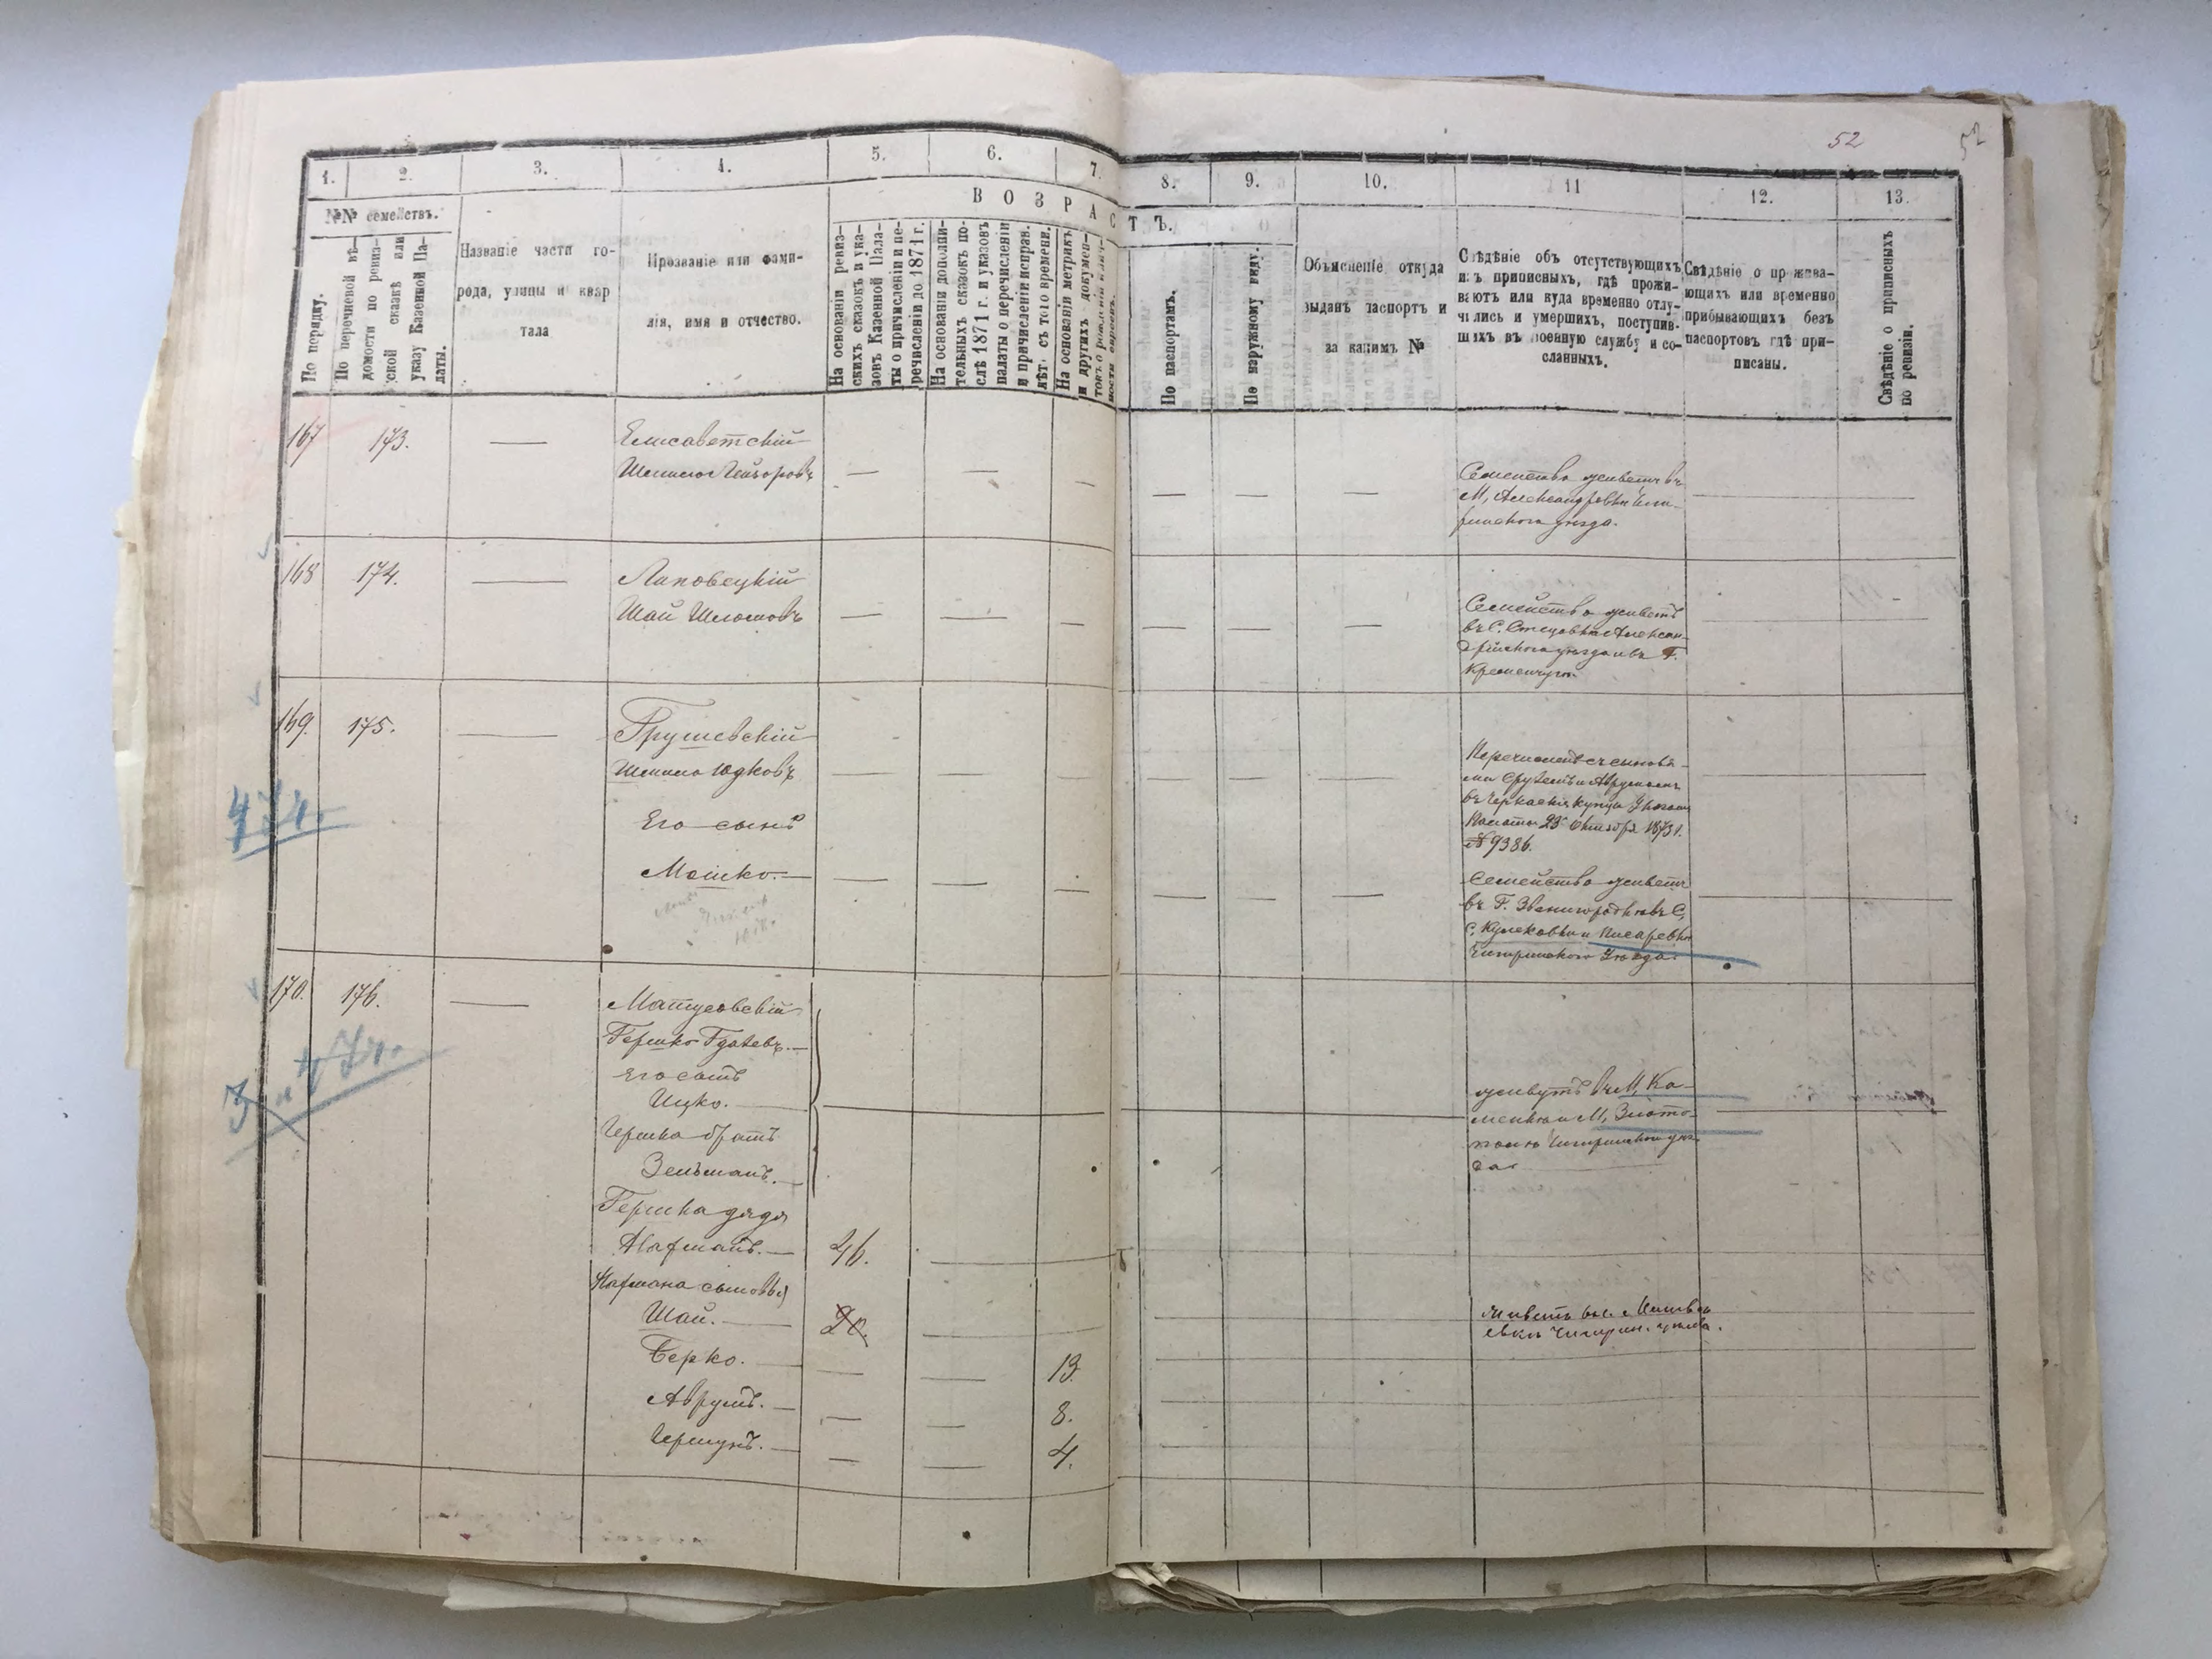 52
52
1.
2.
3.
4.
5.
6.
7.
8.
9.
10.
11
12.
13.
№№ семействъ.
ВОЗРАСТЪ.
По порядку.
По перечневой вѣ-
домости по ревиз-
ской сказкѣ или
указу Казенной Па-
латы.
Названіе части го-
рода, улицы и квар
тала
Прозваніе или фами-
лія, имя и отчество.
На основаніи ревиз-
скихъ сказокъ и ука-
зовъ Казенной Пала-
ты о причисленіи и пе-
речисленіи до 1871 г.
На основаніи дополни-
тельныхъ сказокъ по-
слѣ 1871 г. и указовъ
палаты о перечисленіи
и причисленіи исправ.
лѣтъ съ того времени.
На основаніи метрикъ
и другихъ докумен-
товъ о рожденіи и лич-
ности евреевъ.
По паспортамъ.
По наружному виду.
Объясненіе откуда
выданъ паспортъ и
за какимъ №
Свѣдѣніе объ отсутствующихъ
изъ приписныхъ, гдѣ прожи-
ваютъ или куда временно отлу-
чились и умершихъ, поступив-
шихъ въ военную службу и со-
сланныхъ.
Свѣдѣніе о прожива-
ющихъ или временно
прибывающихъ безъ
паспортовъ гдѣ при-
писаны.
Свѣдѣніе о приписныхъ
по ревизіи.
167 173. — Елисаветскій
— — — — — —
Семейство живетъ въ
М, Александровкѣ Чиги-
ринскаго уѣзда.
168 174. — Липовецкій
Шай Шломовъ — — — — — —
Семейство живетъ
въ С. Стецовкѣ Алексан-
дрійскаго уѣзда и въ Г.
Кременчугѣ
169. 175. — Грушевскій
Шмило Юдковъ — — — — — —
Его сынъ
Мошко. — — — — — — —
Перечисленъ съ сыновья-
ми Срулемъ и Аврумомъ
въ Черкаскіе купцы Указомъ
Палаты 23 Октября 1873 г.
№ 9386.
Семейство живетъ
въ Г. Звенигородкѣ и въ С,
С, Кулековки и Писаревки
Чигиринскаго Уѣзда.
474.
170. 176. — Матусовскій
Гершко Гдалевъ. —
Его сынъ
Ицко. —
Гершка братъ
Зельманъ. —
живутъ въ М, Ка-
менкѣ и М, Златополѣ
Чигиринскаго уѣз-
да
Гершка дядя
Нафманъ. — 46. —
Нафмана сыновья
Шай. — 20. —
Живетъ въ с.
Чигирин. уѣзда.
Берко. — — — 13.
Аврумъ. — — — 8.
Гершунъ. — — — 4.